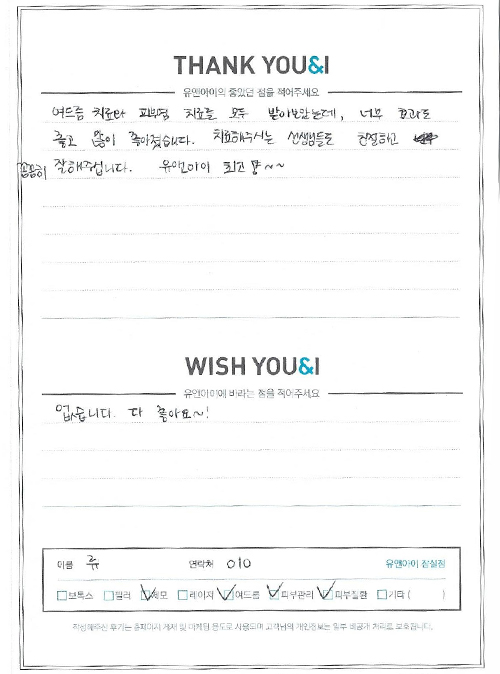 THANK YOU&I
유앤아이의 좋았던 점을 적어주세요
여드름 치료와 피부염 치료를 모두 받아보았는데, 너무 효과도
좋고 많이 좋아졌습니다. 치료해주시는 선생님들도 친절하고
꼼꼼히 잘해주십니다. 유앤아이 최고 짱~~
WISH YOU&I
유앤아이에 바라는 점을 적어주세요
없습니다. 다 좋아요~!
이름 류 연락처 010 유앤아이 잠실점
보톡스 필러 제모 레이저 여드름 피부관리 피부질환 기타 ( )
작성해주신 후기는 홈페이지 게재 및 마케팅 용도로 사용되며 고객님의 개인정보는 일부 비공개 처리로 보호됩니다.